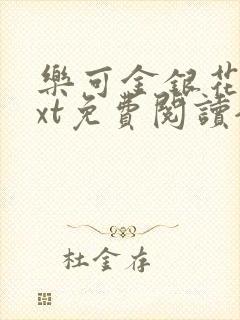 樂可金銀花
xt免費閱讀
杜金存